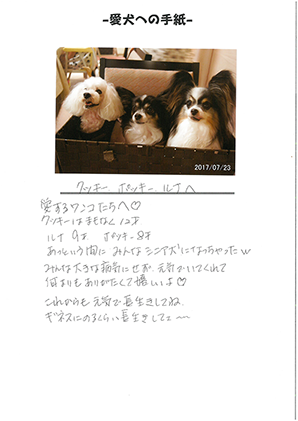 -愛犬への手紙-
2017/07/23
クッキー、ポッキー、ルナへ
愛するワンコたちへ♡
クッキーはまもなく12才
ルナ 9才 ポッキー8才
あっという間に みんなシニアズになっちゃったw
みんな大きな病気にせず、元気でいてくれて
何よりもありがたくて嬉しいよ♡
これからも元気で長生きしてね。
ギネスにのるくらい長生きしてェ〜